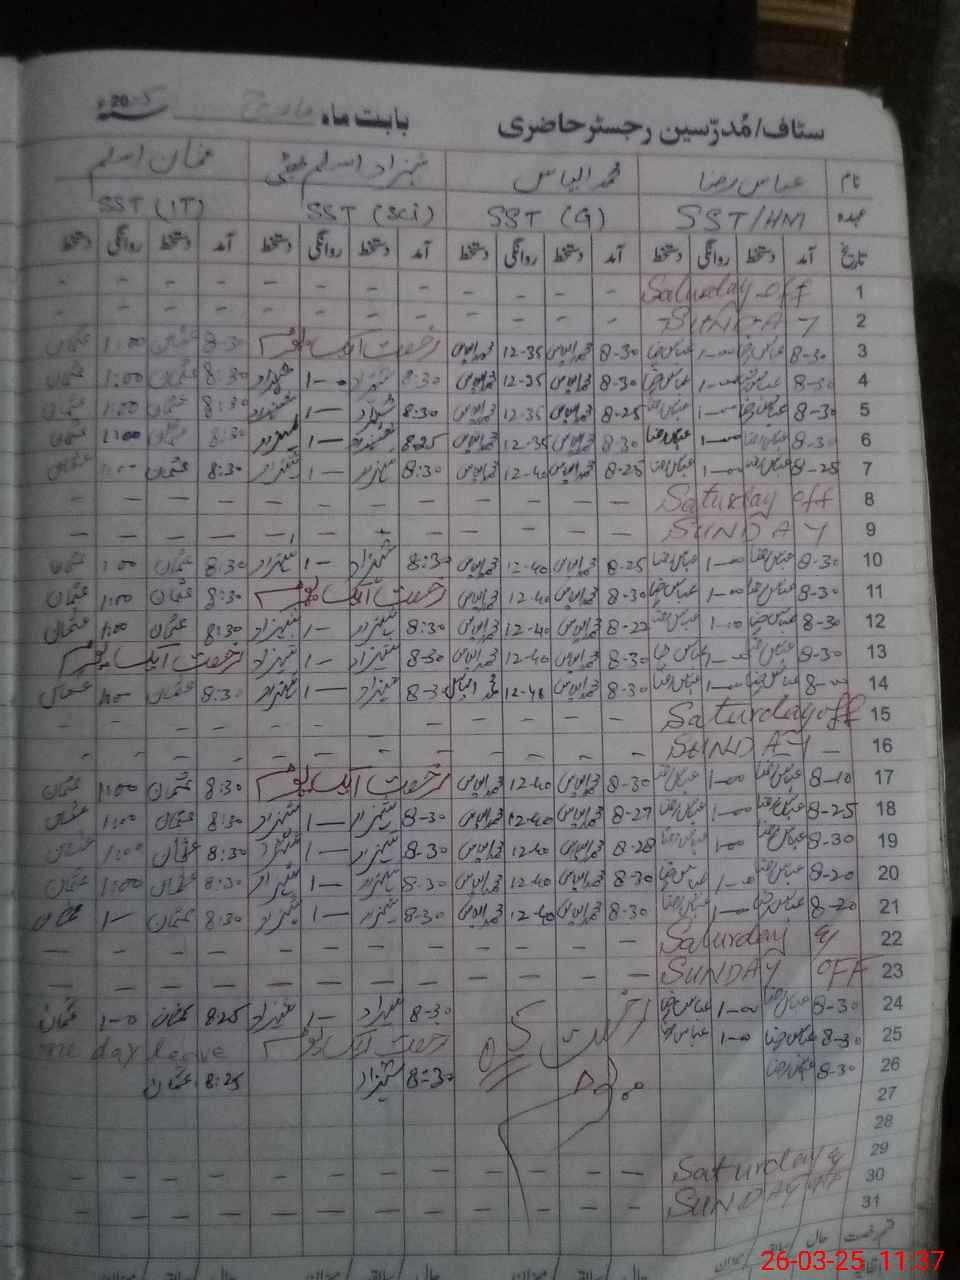 سٹاف/مُدرّسین رجسٹر حاضری بابت ماہ مارچ 2025ء
نام عباس رضا محمد الیاس شہزاد اسلم عثمان اسلم
عہدہ SST/HM SST (G) SST (Sci) SST (IT)
تاریخ آمد دستخط روانگی دستخط آمد دستخط روانگی دستخط آمد دستخط روانگی دستخط آمد دستخط روانگی دستخط
1 Saturday off - - - - - - - - - - - -
2 SUNDAY - - - - - - - - - - - -
3 8-30 عباس رضا 1-00 عباس رضا 8-30 محمد الیاس 12-35 محمد الیاس رخصت ایک یوم 8-30 عثمان 1:00 عثمان
4 8-30 عباس رضا 1-00 عباس رضا 8-30 محمد الیاس 12-35 محمد الیاس 8:30 شہزاد 1-00 شہزاد 8:30 عثمان 1:00 عثمان
5 8-30 عباس رضا 1-00 عباس رضا 8-25 محمد الیاس 12-35 محمد الیاس 8:30 شہزاد 1- شہزاد 8:30 عثمان 1:00 عثمان
6 8-30 عباس رضا 1-00 عباس رضا 8-30 محمد الیاس 12-35 محمد الیاس 8:25 شہزاد 1- شہزاد 8:30 عثمان 1:00 عثمان
7 8-25 عباس رضا 1-00 عباس رضا 8-25 محمد الیاس 12-40 محمد الیاس 8:30 شہزاد 1- شہزاد 8:30 عثمان 1:00 عثمان
8 Saturday off - - - - - - - - - - - -
9 SUNDAY - - - - - - - - - - - -
10 8-30 عباس رضا 1-00 عباس رضا 8-25 محمد الیاس 12-40 محمد الیاس 8:30 شہزاد 1- شہزاد 8:30 عثمان 1:00 عثمان
11 8-30 عباس رضا 1-00 عباس رضا 8-30 محمد الیاس 12-40 محمد الیاس رخصت ایک یوم 8:30 عثمان 1:00 عثمان
12 8-30 عباس رضا 1-00 عباس رضا 8-22 محمد الیاس 12-40 محمد الیاس 8:30 شہزاد 1- شہزاد 8:30 عثمان 1:00 عثمان
13 8-30 عباس رضا 1-00 عباس رضا 8-30 محمد الیاس 12-40 محمد الیاس 8-30 شہزاد 1- شہزاد رخصت ایک یوم
14 8-00 عباس رضا 1-00 عباس رضا 8-30 محمد الیاس 12-40 محمد الیاس 8-30 شہزاد 1- شہزاد 8:30 عثمان 1:00 عثمان
15 Saturday off - - - - - - - - - - - -
16 SUNDAY - - - - - - - - - - - - -
17 8-10 عباس رضا 1-00 عباس رضا 8-30 محمد الیاس 12-40 محمد الیاس رخصت ایک یوم 8:30 عثمان 1:00 عثمان
18 8-25 عباس رضا 1-00 عباس رضا 8-27 محمد الیاس 12-40 محمد الیاس 8-30 شہزاد 1- شہزاد 8:30 عثمان 1:00 عثمان
19 8-30 عباس رضا 1-00 عباس رضا 8-28 محمد الیاس 12-40 محمد الیاس 8-30 شہزاد 1- شہزاد 8:30 عثمان 1:00 عثمان
20 8-20 عباس رضا 1-00 عباس رضا 8-30 محمد الیاس 12-40 محمد الیاس 8-30 شہزاد 1- شہزاد 8:30 عثمان 1:00 عثمان
21 8-20 عباس رضا 1-00 عباس رضا 8-30 محمد الیاس 12-40 محمد الیاس 8-30 شہزاد 1- شہزاد 8:30 عثمان 1- عثمان
22 Saturday & - - - - - - - - - - - -
23 SUNDAY OFF - - - - - - - - - - - -
24 8-30 عباس رضا 1-00 عباس رضا 8-30 شہزاد 1- شہزاد 8:25 عثمان 1-00 عثمان
25 8-30 عباس رضا 1-00 عباس رضا رخصت ایک یوم one day leave
26 8-30 عباس رضا 8-30 شہزاد 8:25 عثمان
27
28
29 Saturday &
30 SUNDAY off - - - - - - - - - - - -
31 - - - - - - - - - - - -
قسم رخصت حال سابقہ میزان
26-03-25 11:37